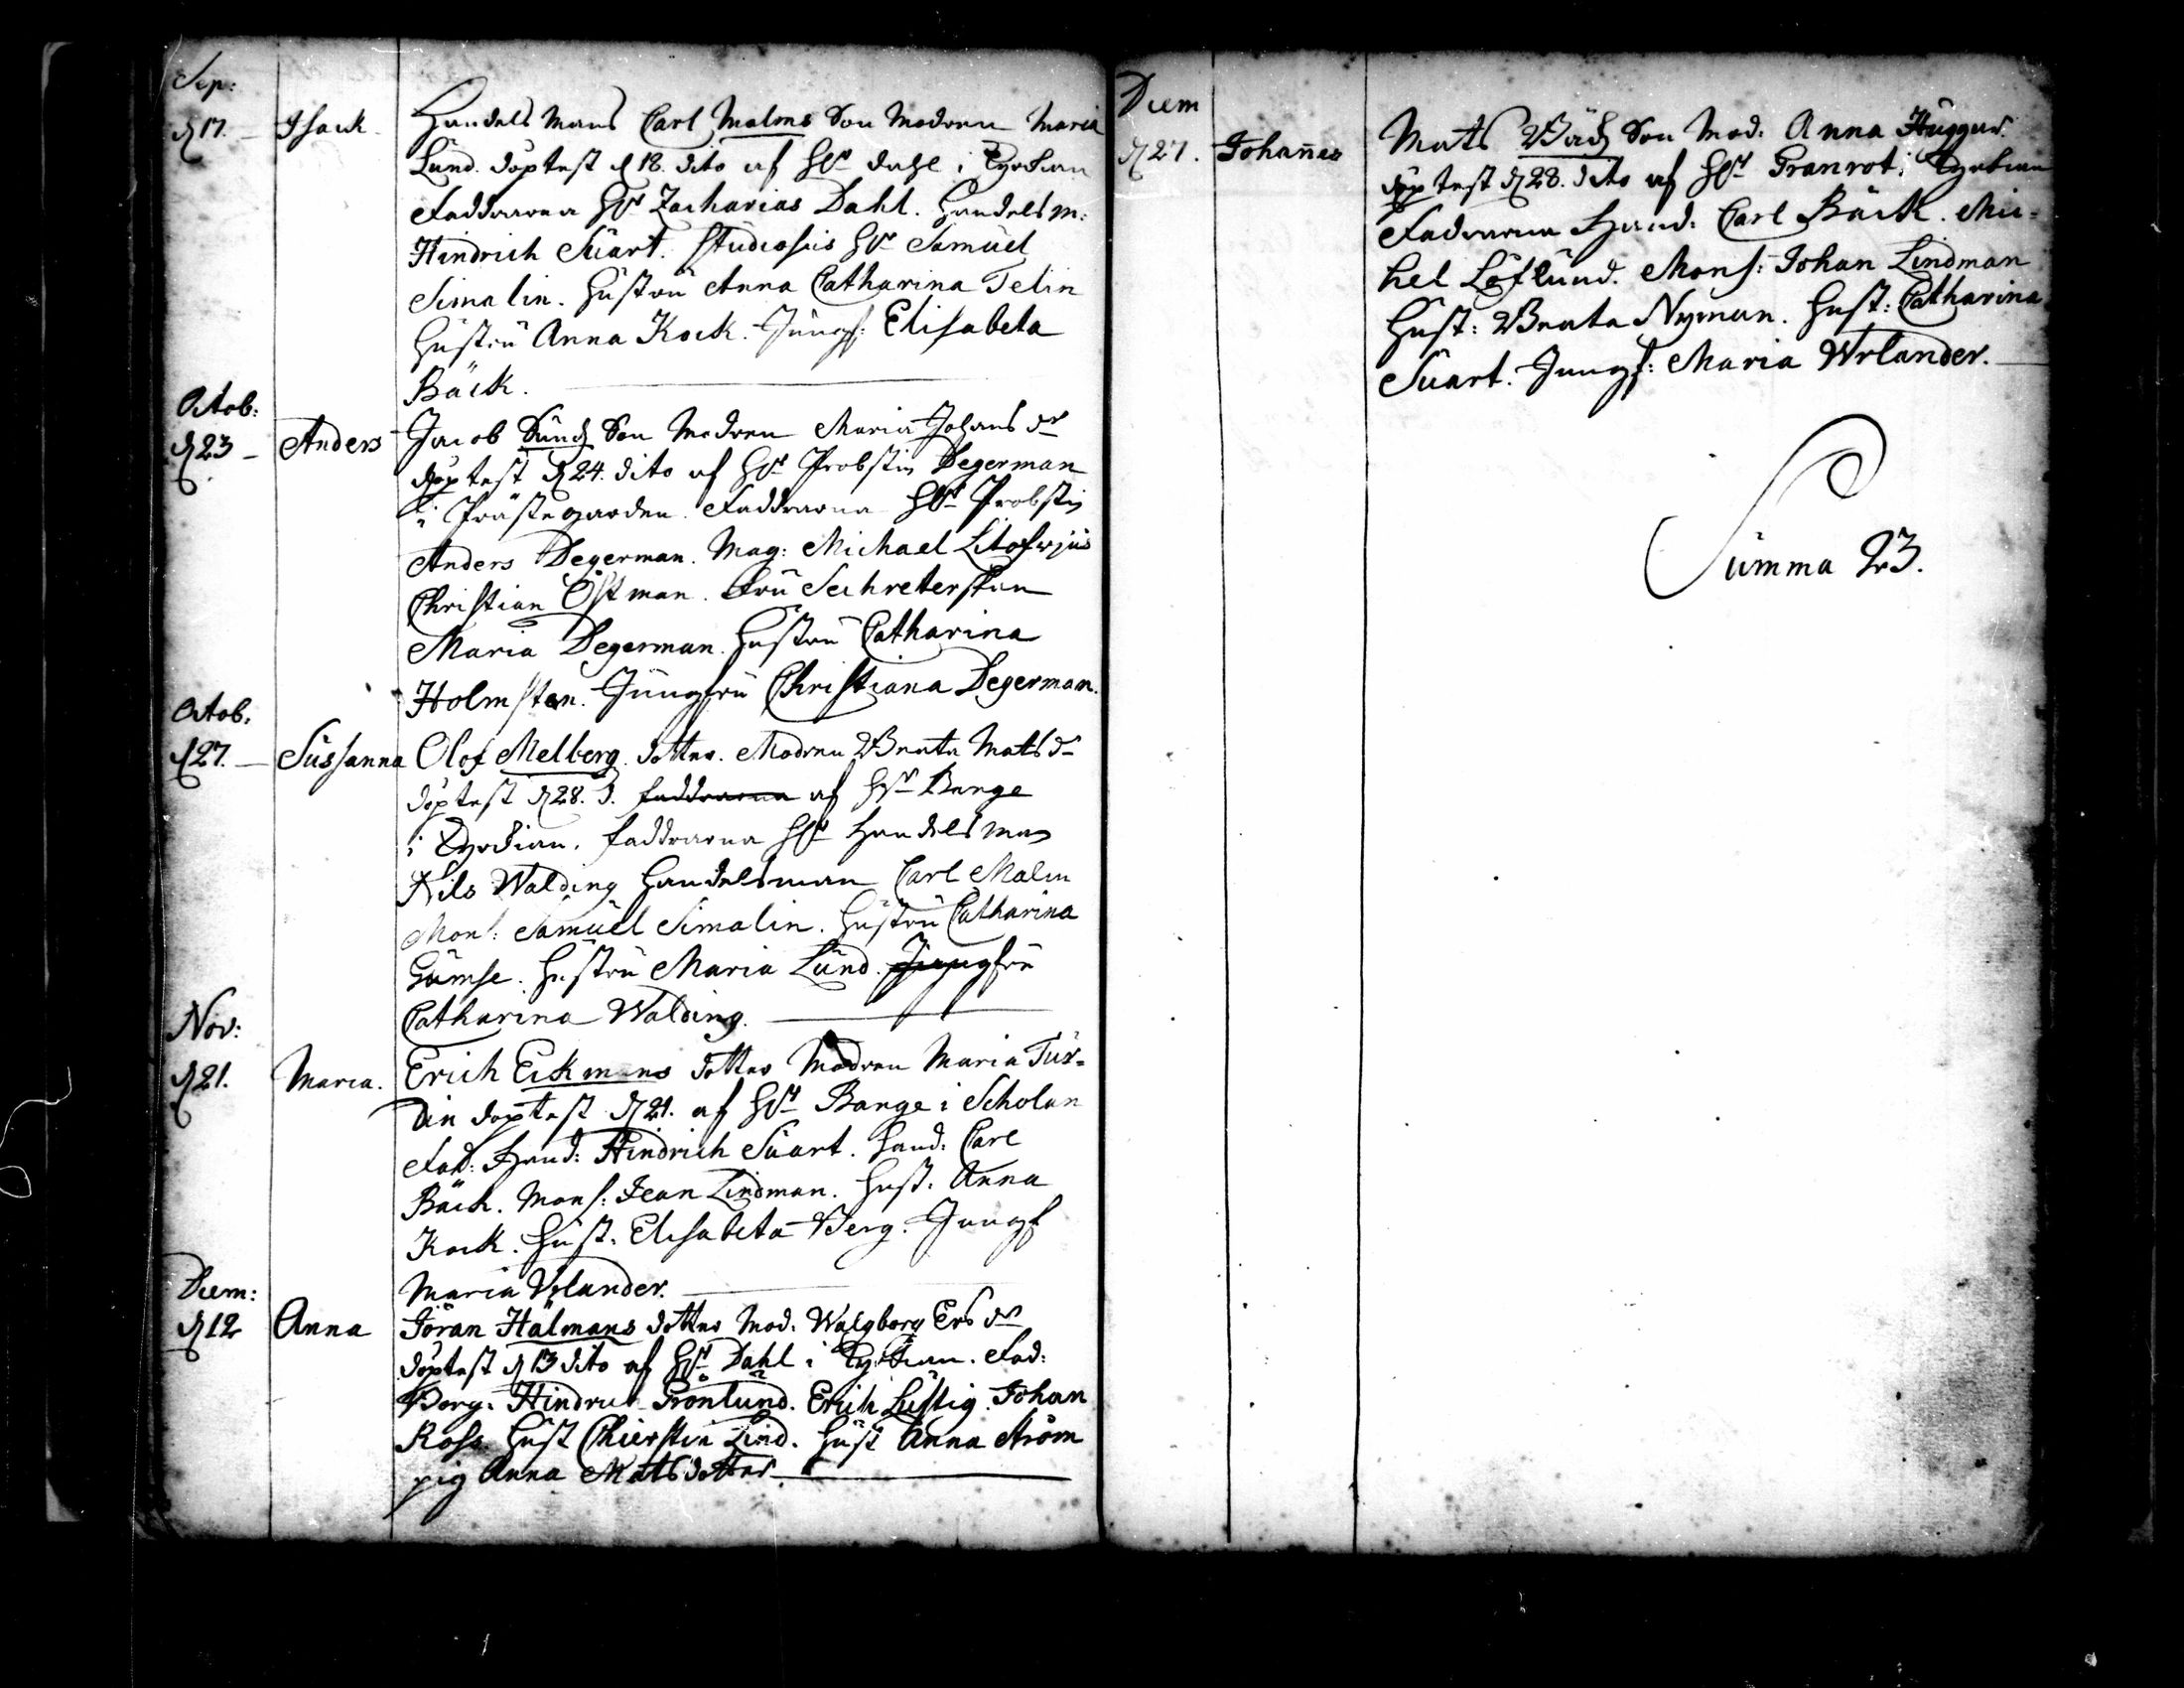 Sep:
d 17. — Isack — Handels Mans Carl Malms Son Modren Maria
Lund. döptest d 18. dito af Hr Dahl i Kyrkian
Faddrarna Hr Zacharias Dahl. Handelsm:
Hindrich Suart. Studiosus Hr Samuel
Simalin. Hustru Anna Catharina Telin
Hustru Anna Kock. Jungf: Elisabeta
Bäck.
Octob:
d 23 — Anders Jacob Sunds Son Modren Maria Johans dr
döptest d 24. dito af Hr Probstin Degerman
i Prästegarden. Faddrarna Hr Probstin
Anders Degerman. Mag: Michael Litofwius
Christian Östman. Fru Sechreterskan
Maria Degerman. Hustru Catharina
Holmsten. Jungfru Christiana Degerman.
Octob.
d 27. — Sussanna Olof Melberg dotter. Modren Beata Mats dr
döptest d 28. d. faddrarna af Hr Bange
i Kyrkian. faddrarna Hr Handelsman
Nils Walding Handelsman Carl Malm
Mons: Samuel Simalin. Hustru Catharina
Gamse. Hustru Maria Lund. Jungfru
Catharina Walding.
Nov:
d 21. Maria. Erich Eckmans dotter Modren Maria Tur=
din döptest d 21. af Hr Bange i Scholan
Fad: Hand: Hindrich Suart. Hand: Carl
Bäck. Mons: Jean Lindman. Hust. Anna
Kock. Hust. Elisabeta Berg. Jungf
Maria Wrlander.
Decem:
d 12 Anna Jöran Hälmans dotter Mod. Walgborg Ers dr
döptest d 13 dito af Hr Dahl i Kyrkian. Fad:
Borg. Hindric Grönlund. Erich Lustig. Johan
Ross. Hust Chierstin Lind. Hust Anna Ström
pig Anna Matsdotter
Decem
d 27. Johannes Mats Bäcks Son Mod: Anna Huggur.
döptest d 28. dito af Hr Granrot i Kyrkian
Fadrarna Hand: Carl Bäck. Mic=
hel Löflund. Mons: Johan Lindman
Hust: Beata Nyman. Hust: Catharina
Suart. Jungf: Maria Wrlander.
Summa 23.